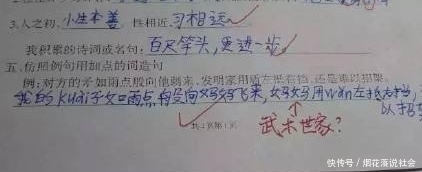 3.人之初,小生本善,性相近,习相远
我积累的诗词或名句:百尺竿头,更进一步。
五、仿照例句用加点的词造句
例:对方的矛如雨点般向他刺来,发明家用盾左抵右挡,还是难以招架。
我的Kuai子如雨点般向妈妈飞来,妈妈用wan左抵右挡,
以招
共4页第1页
武术世家?
快传号/烟花落说社会